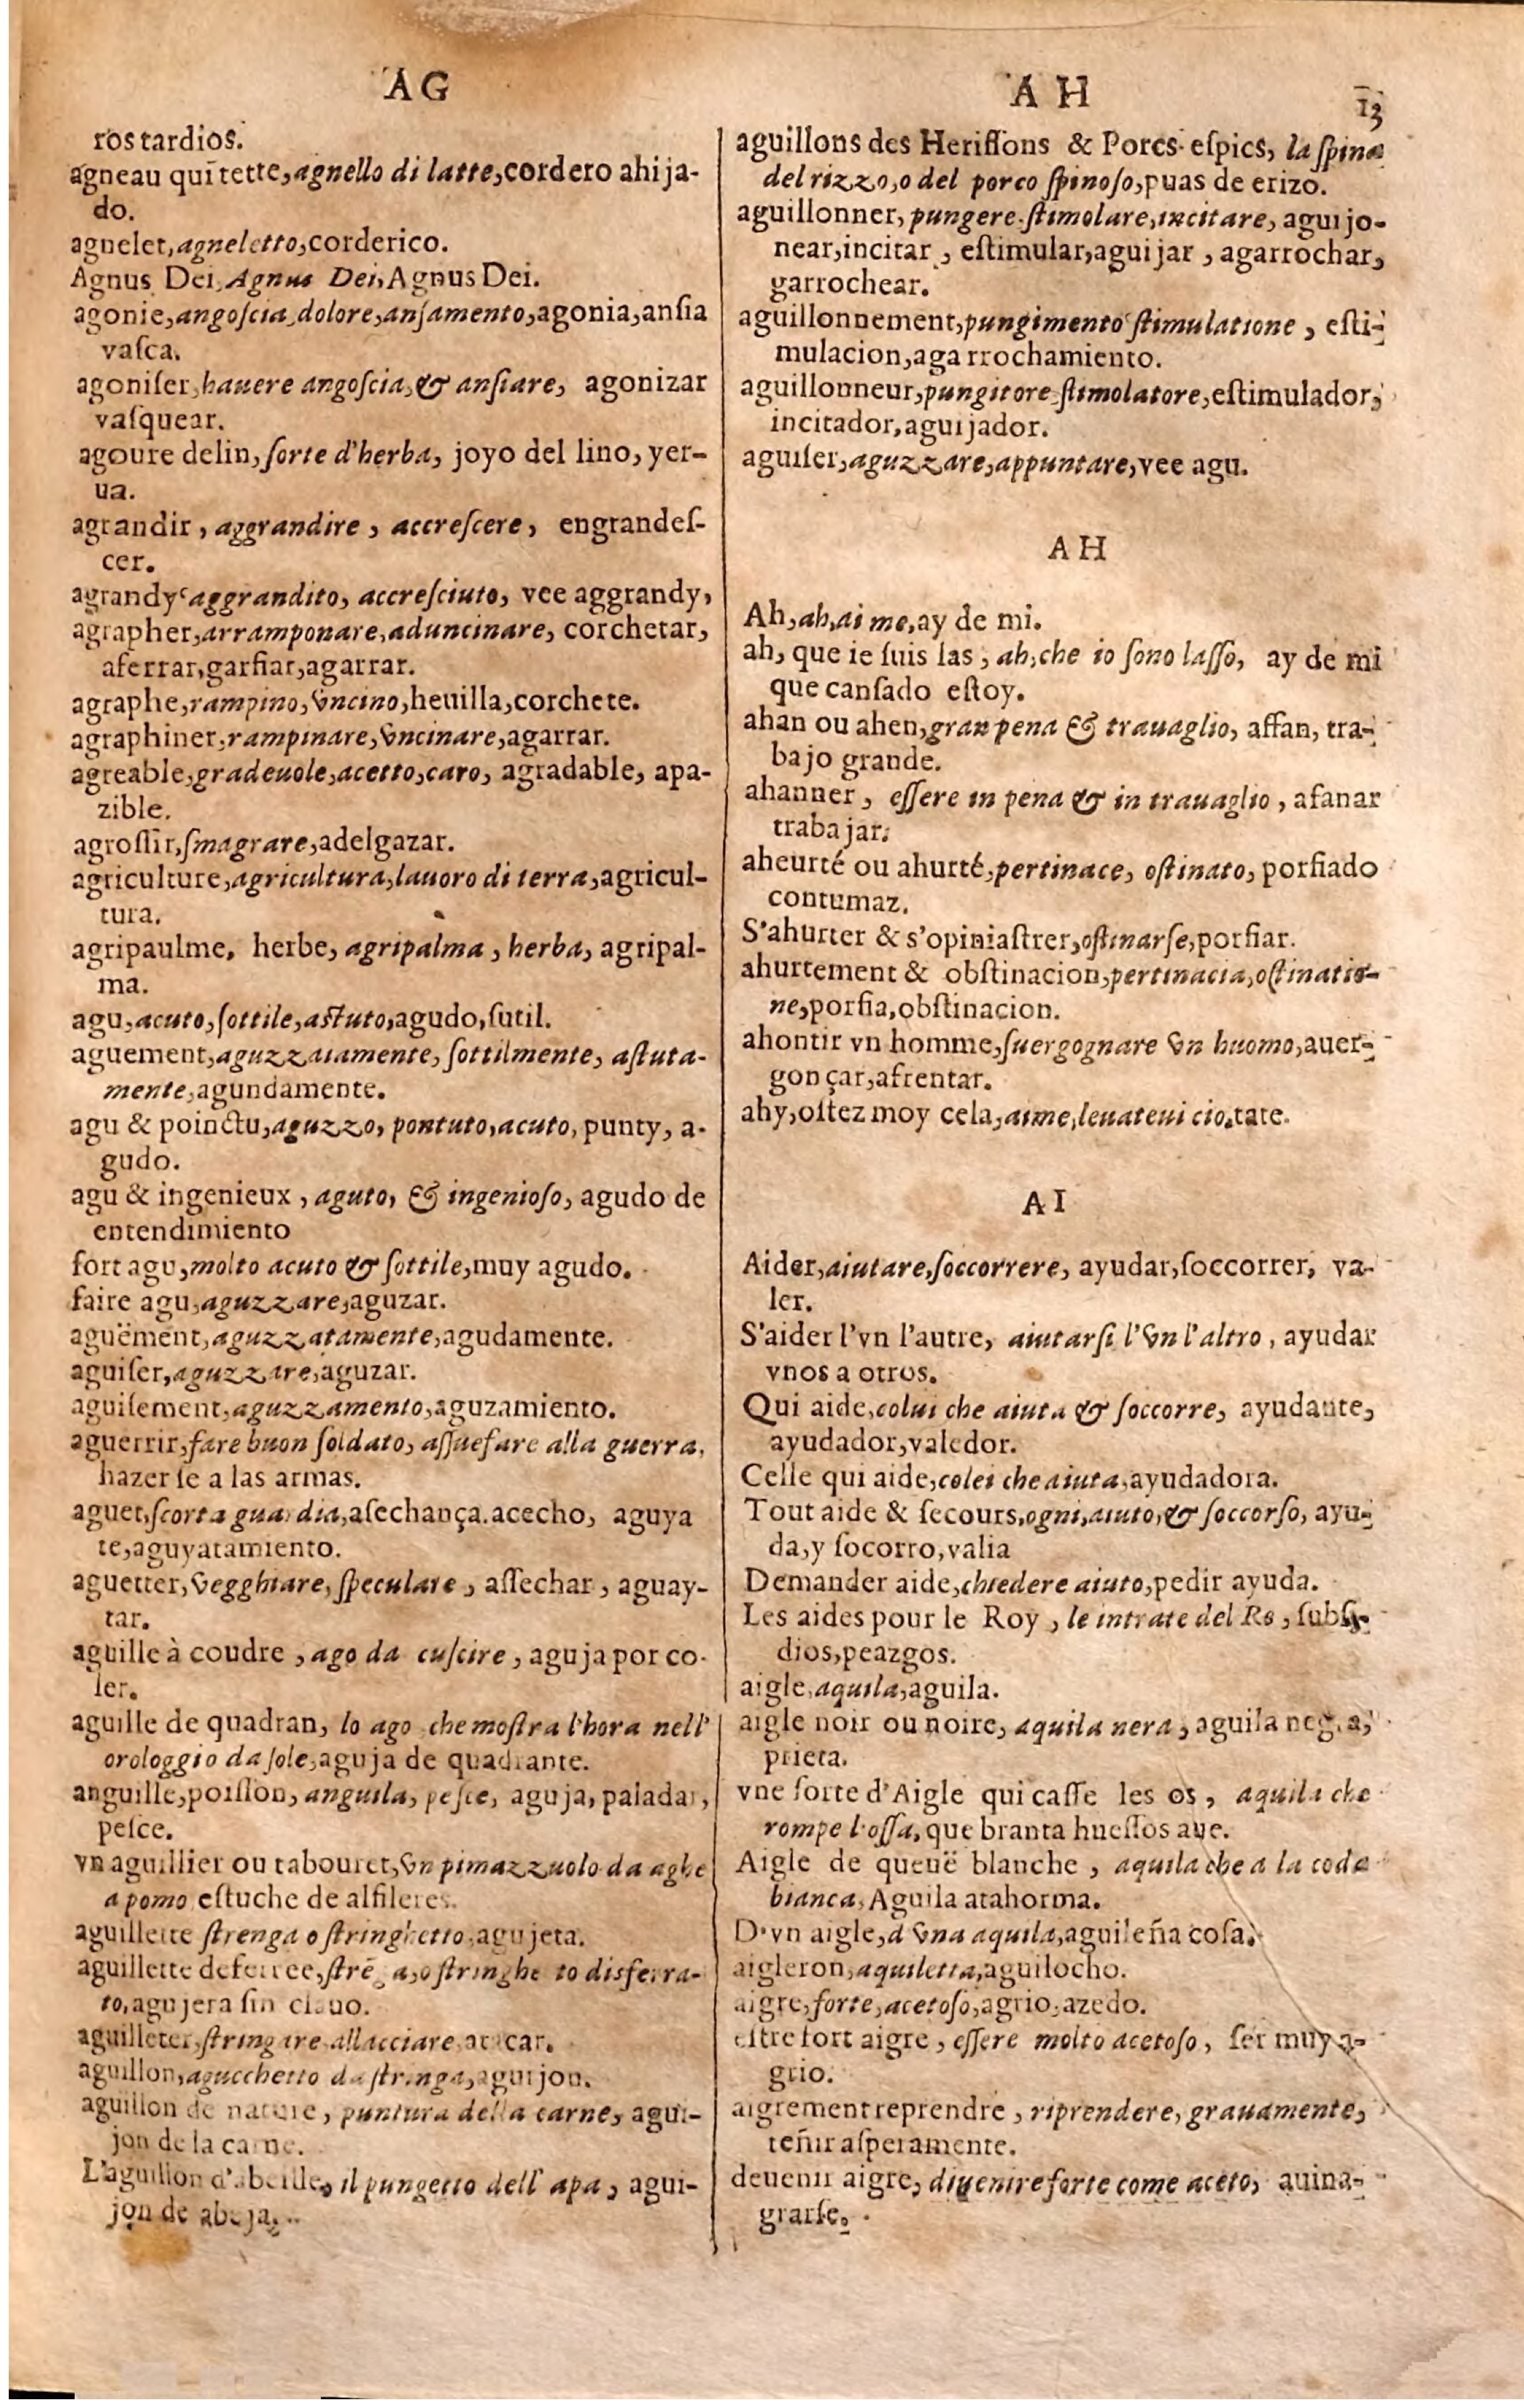 AG
ros tardios.
agneau qui tette, agnello di latte, cordero ahija-
do.
agnelet, agneletto, corderico.
Agnus Dei, Agnus Dei, Agnus Dei.
agonie, angoſcia, dolore, anſamento, agonia, anſia
vaſca.
agoniſer, hauere angoſcia, & anſiare, agonizar
vaſquear.
agoure delin, ſorte d'herba, joyo del lino, yer-
ua.
agrandir, aggrandire, accreſcere, engrandeſ-
cer.
agrandy aggrandito, accreſciuto, vee aggrandy,
agrapher, arramponare, aduncinare, corchetar,
aferrar, garfiar, agarrar.
agraphe, rampino, vncino, heuilla, corchete.
agraphiner, rampinare, vncinare, agarrar.
agreable, gradeuole, acetto, caro, agradable, apa-
zible.
agroſſir, ſmagrare, adelgazar.
agriculture, agricultura, lauoro di terra, agricul-
tura.
agripaulme, herbe, agripalma, herba, agripal-
ma.
agu, acuto, ſottile, aſtuto, agudo, ſutil.
aguement, aguzzatamente, ſottilmente, aſtuta-
mente, agundamente.
agu & poinctu, aguzzo, pontuto, acuto, punty, a-
gudo.
agu & ingenieux, aguto, & ingenioſo, agudo de
entendimiento
fort agu, molto acuto & ſottile, muy agudo.
faire agu, aguzzare, aguzar.
aguëment, aguzzatamente, agudamente.
aguiſer, aguzzare, aguzar.
aguiſement, aguzzamento, aguzamiento.
aguerrir, fare buon ſoldato, aſſuefare alla guerra,
hazer ſe a las armas.
aguet, ſcorta guardia, aſechança. acecho, aguya
te, aguyatamiento.
aguetter, vegghiare, ſpeculare, aſſechar, aguay-
tar.
aguille à coudre, ago da cuſcire, aguja por co-
ſer.
aguille de quadran, lo ago che moſtra l'hora nell'
orologgio da ſole, aguja de quadrante.
anguille, poiſſon, anguila, peſce, aguja, paladar,
peſce.
vn aguillier ou tabouret, vn pimazzuolo da aghe
a pomo eſtuche de alfileres.
aguillette ſtrenga o ſtringhetto, agujeta.
aguillette deferree, ſtrēga, o ſtringhetto disferra-
to, agujera ſin clauo.
aguilleter, ſtringare allacciare, atacar.
aguillon, agucchetto da ſtringa, aguijon.
aguillon de nature, puntura della carne, agui-
jon de la carne.
L'aguillon d'abeille, il pungetto dell' apa, agui-
jon de abeja.
AH
13
aguillons des Heriſſons & Porcs eſpics, la ſpina
del rizzo, o del porco ſpinoſo, puas de erizo.
aguillonner, pungere ſtimolare, incitare, aguijo-
near, incitar, eſtimular, aguijar, agarrochar,
garrochear.
aguillonnement, pungimento ſtimulatione, eſti-
mulacion, agarrochamiento.
aguillonneur, pungitore ſtimolatore, eſtimulador,
incitador, aguijador.
aguiſer, aguzzare, appuntare, vee agu.
AH
Ah, ah, ai me, ay de mi.
ah, que ie ſuis las, ah, che io ſono laſſo, ay de mi
que canſado eſtoy.
ahan ou ahen, gran pena & trauaglio, affan, tra-
bajo grande.
ahanner, eſſere in pena & in trauaglio, afanar
trabajar.
aheurté ou ahurté, pertinace, oſtinato, porfiado
contumaz.
S'ahurter & s'opiniaſtrer, oſtinarſe, porfiar.
ahurtement & obſtinacion, pertinacia, oſtinatio-
ne, porfia, obſtinacion.
ahontir vn homme, ſuergognare vn huomo, auer-
gonçar, afrentar.
ahy, oſtez moy cela, aime, leuateui cio, tate.
AI
Aider, aiutare, ſoccorrere, ayudar, ſoccorrer, va-
ler.
S'aider l'vn l'autre, aiutarſi l'vn l'altro, ayudar
vnos a otros.
Qui aide, colui che aiuta & ſoccorre, ayudante,
ayudador, valedor.
Celle qui aide, colei che aiuta, ayudadora.
Tout aide & ſecours, ogni, aiuto, & ſoccorſo, ayu-
da, y ſocorro, valia
Demander aide, chiedere aiuto, pedir ayuda.
Les aides pour le Roy, le intrate del Re, ſubſi-
dios, peazgos.
aigle, aquila, aguila.
aigle noir ou noire, aquila nera, aguila negra,
prieta.
vne ſorte d'Aigle qui caſſe les os, aquila che
rompe l'oſſa, que branta hueſſos aue.
Aigle de queuë blanche, aquila che a la coda
bianca, Aguila atahorma.
D'vn aigle, d vna aquila, aguileña coſa.
aigleron, aquiletta, aguilocho.
aigre, forte, acetoſo, agrio, azedo.
eſtre fort aigre, eſſere molto acetoſo, ſer muy a-
grio.
aigrement reprendre, riprendere, grauamente,
teñir aſperamente.
deuenir aigre, diuenire forte come aceto, auina-
grarſe.